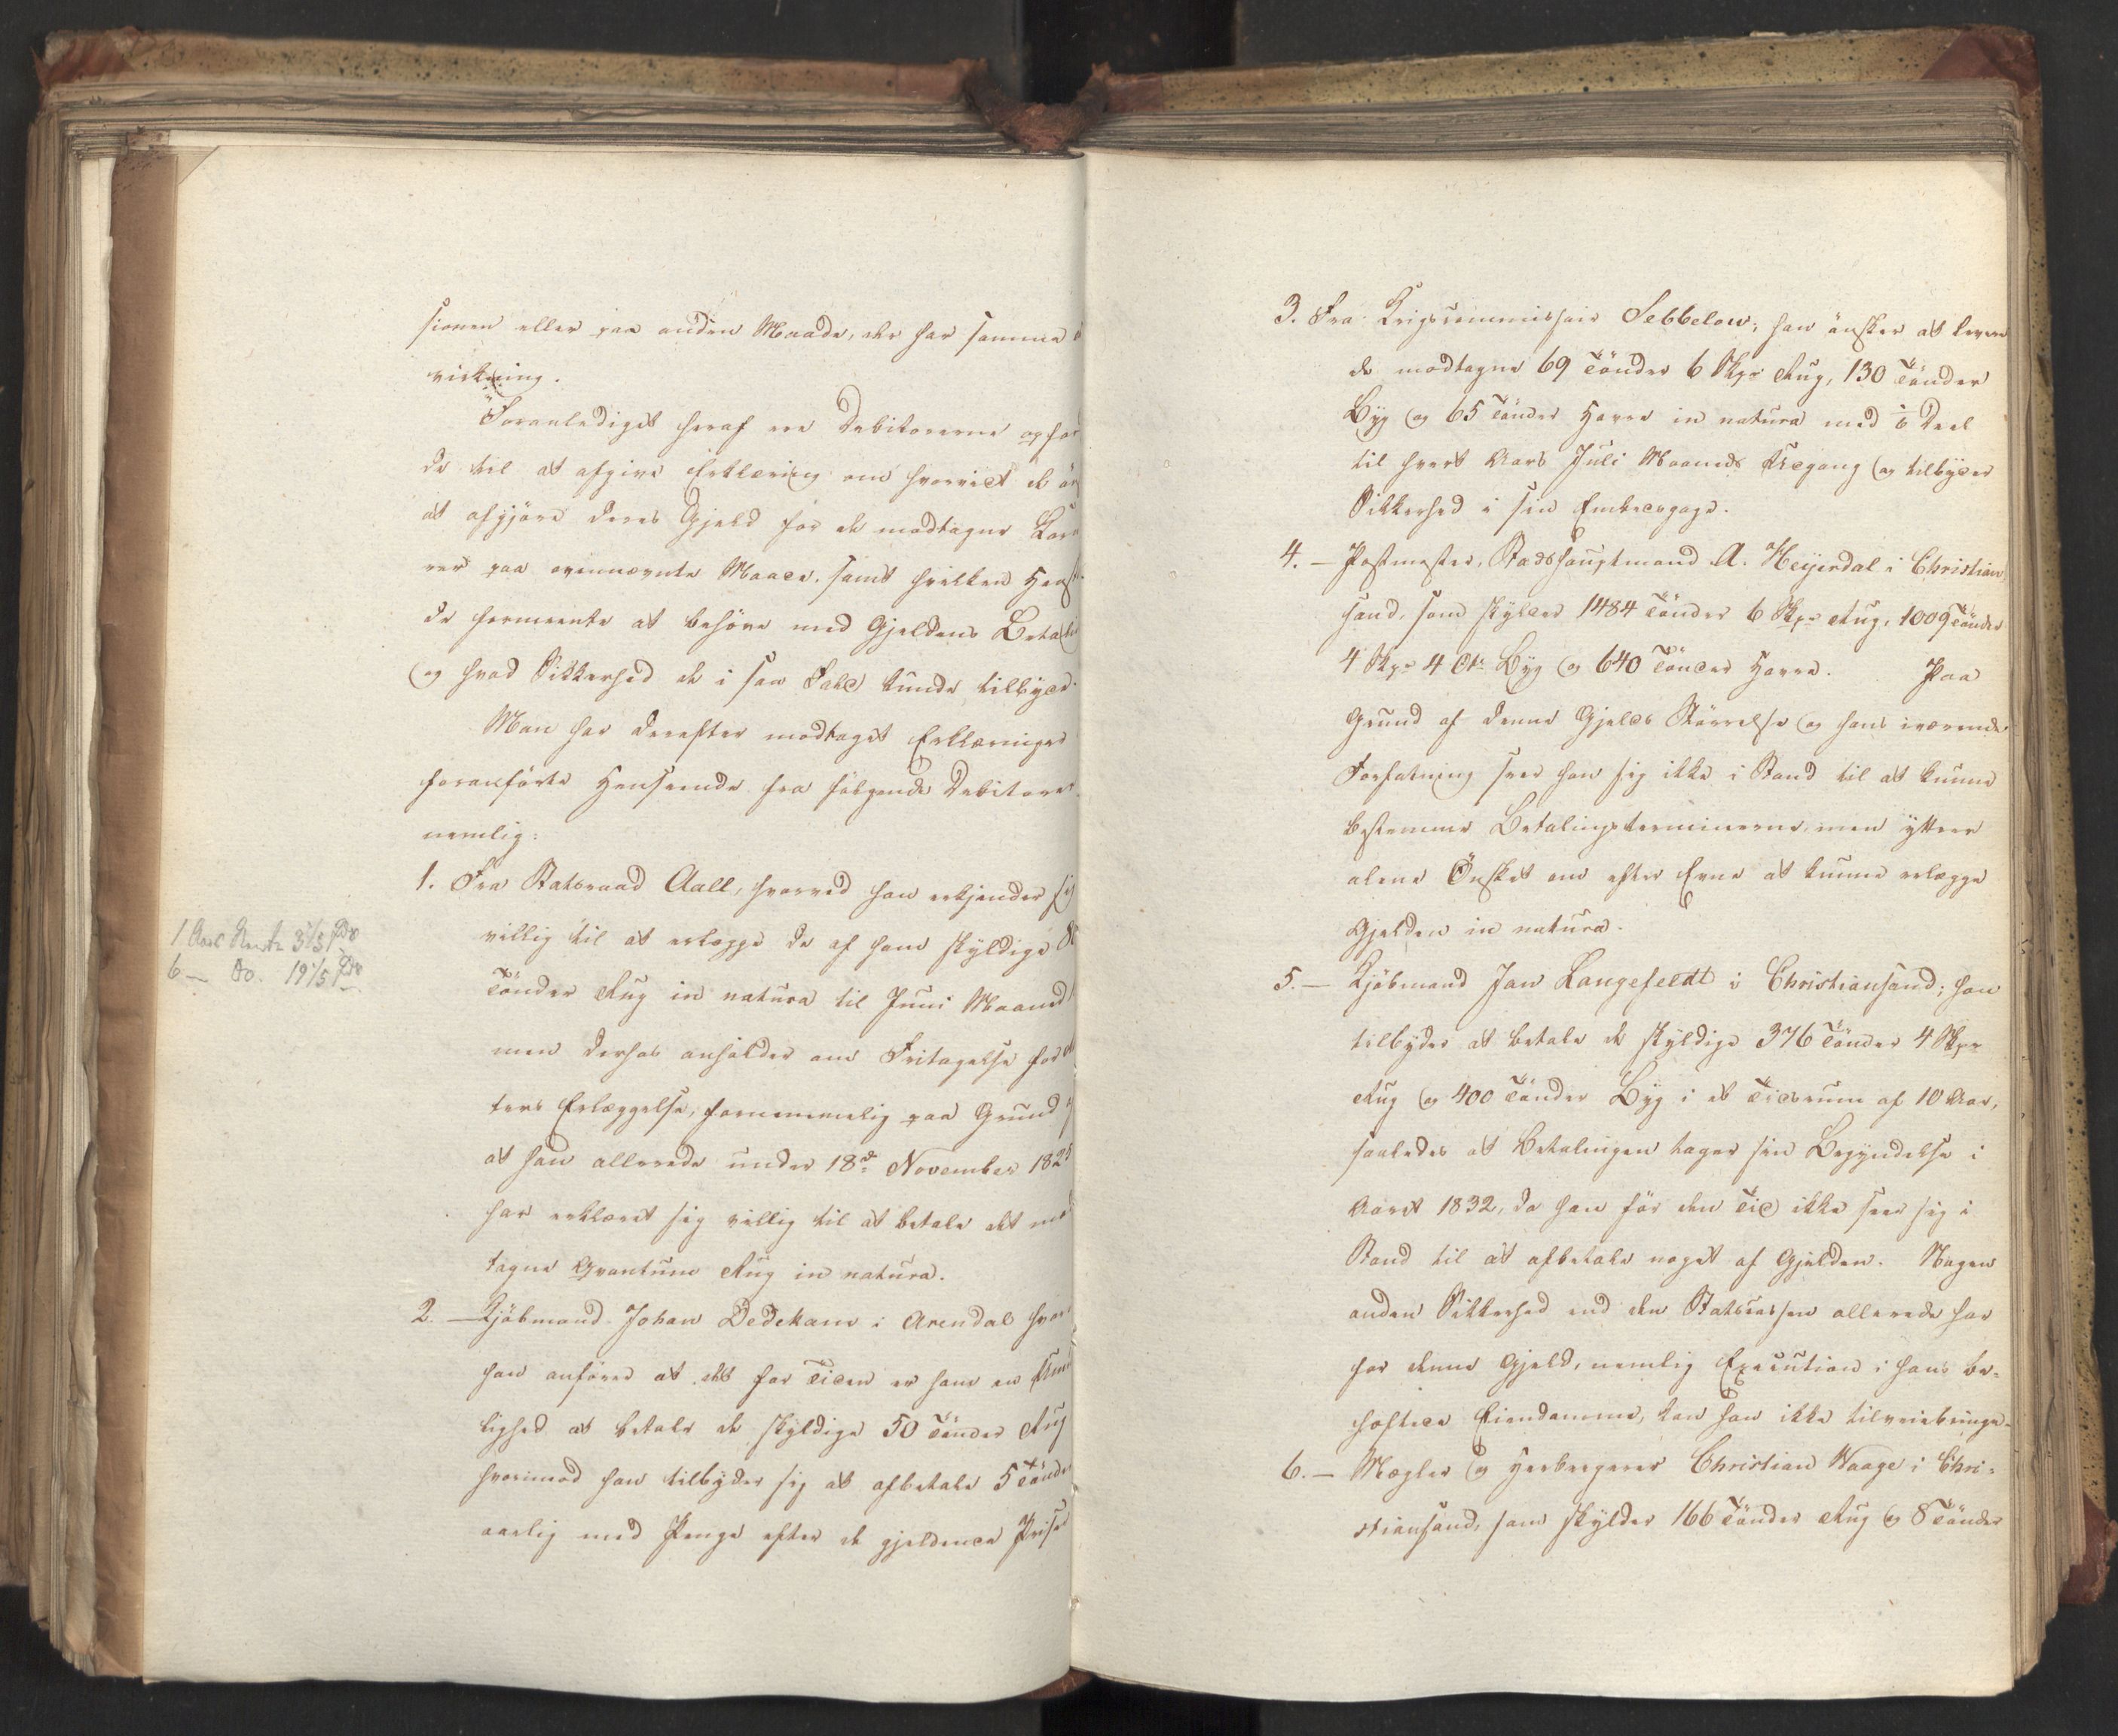 sionen eller paa anden Maade, der har samme
virkning.
Foranlediget heraf ere Debitorerne opfor
de til at afgive Erklæring om hvorvidt de øn
at afgjöre deres Gjeld for de modtagne Korn
rer paa ovennævnte Maade, samt hvilken Hen
de formeente at behöve med Gjeldens Betal
og hvad Sikkerhed de i saa Fald kunde tilbyde.
Man har derefter modtaget Erklæringer
foranförte Henseende fra fölgende Debitorer
nemlig:
1. Fra Statsraad Aall, hvorved han erkjender sig
villig til at erlægge de af ham skyldige 8
Tönder Rug in natura til Juni Maaned
men derhos anholder om Fritagelse for
ters Erlæggelse, fornemmelig paa Grund
at han allerede under 18de November 1825
har erklæret sig villig til at betale det mod
tagne Qvantum Rug in natura.
1 Aars Rente 3 1/5 Td
6 — do. 19 1/5 Td
2. — Kjöbmand Johan Dedekam i Arendal hvor
han anförer at det for Tiden er ham en Umu
lighed at betale de skyldige 50 Tönder Rug
hvorimod han tilbyder sig at afbetale 5 Tönder
aarlig med Penge efter de gjeldende Priser
3. Fra Krigscommissair Sebbelow; han önsker at levere
de modtagne 69 Tönder 6 Skpr Rug, 130 Tönder
Byg og 65 Tönder Havre in natura med 1/6 Deel
til hvert Aars Juli Maaneds Udgang og tilbyder
Sikkerhed i sin Embedsgage.
4. — Postmester, Stadshauptmand A. Heyerdal i Christian
sand, som skylder 1484 Tönder 6 Skpr Rug, 1009 Tönder
4 Skpr 4 Otr Byg og 640 Tönder Havre. Paa
Grund af denne Gjelds Störrelse og hans iværende
Forfatning seer han sig ikke i Stand til at kunne
bestemme Betalingsterminerne, men yttrer
alene Önsket om efter Evne at kunne erlægge
Gjelden in natura.
5. — Kjöbmand Jan Langefeldt i Christiansand; han
tilbyder at betale de skyldige 376 Tönder 4 Skpr
Rug og 400 Tönder Byg i et Tidsrum af 10 Aar,
saaledes at Betalingen tager sin Begyndelse i
Aaret 1832, da han för den Tid ikke seer sig i
Stand til at afbetale noget af Gjelden. Nogen
anden Sikkerhed end den Statscassen allerede har
for denne Gjeld, nemlig Execution i hans be-
hæftede Eiendomme, kan han ikke tilveiebringe.
6. — Mægler og Herbergerer Christian Waage i Chri-
stiansand, som skylder 166 Tönder Rug og 8 Tönder